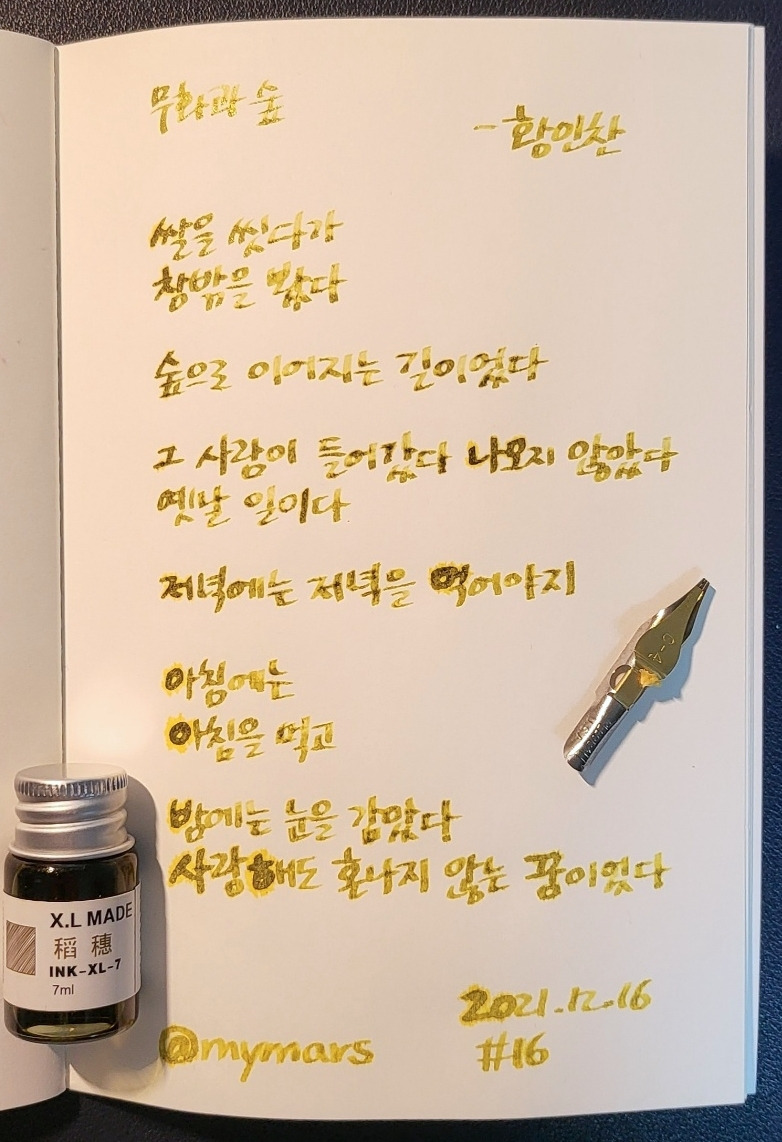 무화과 숲
- 황인찬
쌀을 씻다가
창밖을 봤다
숲으로 이어지는 길이었다
그 사람이 들어갔다 나오지 않았다
옛날 일이다
저녁에는 저녁을 먹어야지
아침에는
아침을 먹고
밤에는 눈을 감았다
사랑해도 혼나지 않는 꿈이었다
2021.12.16
@mymars
#16
X.L MADE
稻穗
INK-XL-7
7ml